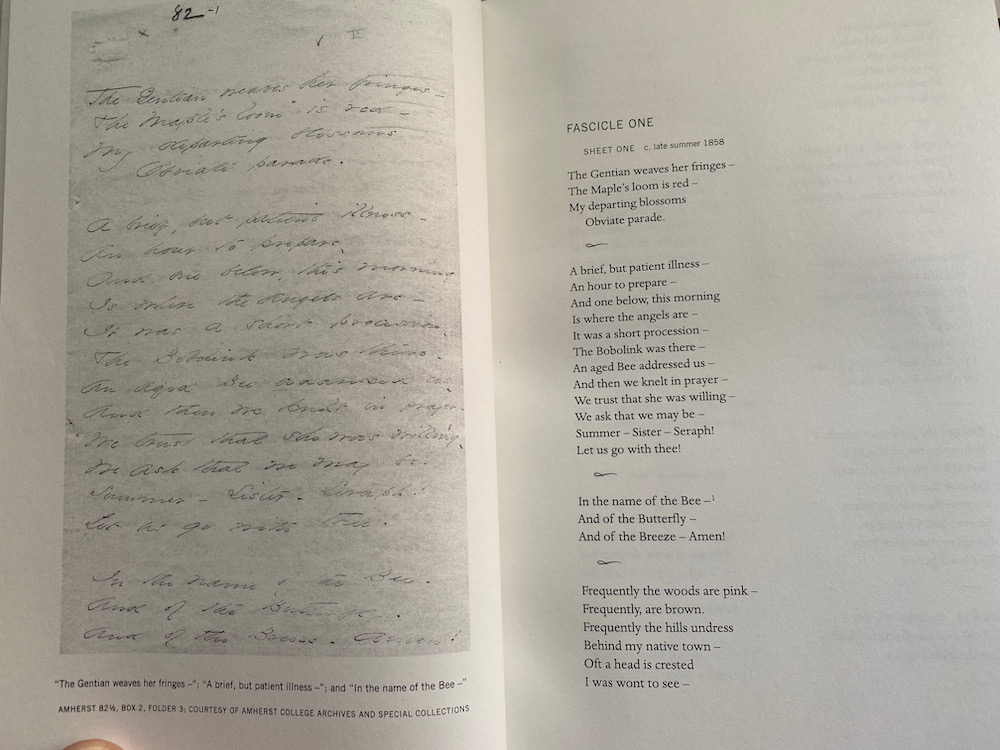 82-1
x
v II
The Gentian weaves her fringes -
The Maple's loom is red -
My departing blossoms
Obviate parade.
A brief, but patient illness -
An hour to prepare,
And one below, this morning
Is where the angels are -
It was a short procession,
The Bobolink was there.
An aged Bee addressed us,
And then we knelt in prayer.
We trust that she was willing,
We ask that we may be.
Summer - Sister - Seraph!
Let us go with thee!
In the name of the Bee.
And of the Butterfly.
And of the Breeze. Amen!
"The Gentian weaves her fringes –"; "A brief, but patient illness –"; and "In the name of the Bee –"
AMHERST 82½, BOX 2, FOLDER 3; COURTESY OF AMHERST COLLEGE ARCHIVES AND SPECIAL COLLECTIONS
FASCICLE ONE
SHEET ONE c. late summer 1858
The Gentian weaves her fringes –
The Maple's loom is red –
My departing blossoms
Obviate parade.
A brief, but patient illness –
An hour to prepare –
And one below, this morning
Is where the angels are –
It was a short procession –
The Bobolink was there –
An aged Bee addressed us –
And then we knelt in prayer –
We trust that she was willing –
We ask that we may be –
Summer – Sister – Seraph!
Let us go with thee!
In the name of the Bee –1
And of the Butterfly –
And of the Breeze – Amen!
Frequently the woods are pink –
Frequently, are brown.
Frequently the hills undress
Behind my native town –
Oft a head is crested
I was wont to see –